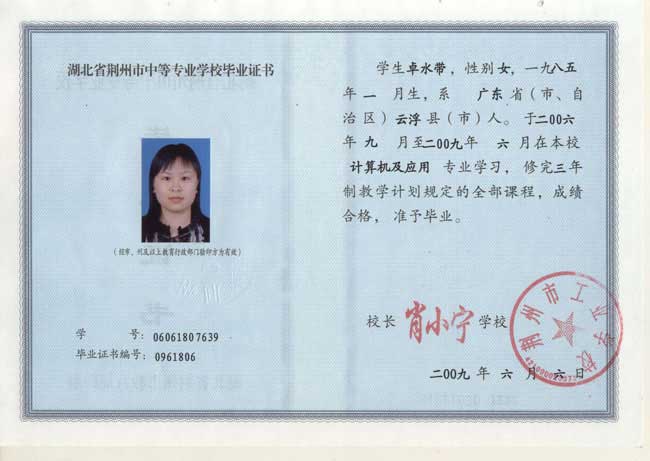 湖北省荆州市中等专业学校毕业证书
(经市、州及以上教育行政部门验印方为有效)
学 号: 06061807639
毕业证书编号: 0961806
学生卓水带, 性别女, 一九八五
年 一 月生, 系 广东 省(市、自
治区) 云浮 县(市)人。于二00六
年 九 月至二00九年 六 月在本校
计算机及应用 专业学习, 修完三年
制教学计划规定的全部课程, 成绩
合格, 准予毕业。
校长 肖小宁 学校
荆州市工业学校
二00九 年 六 月 六 日